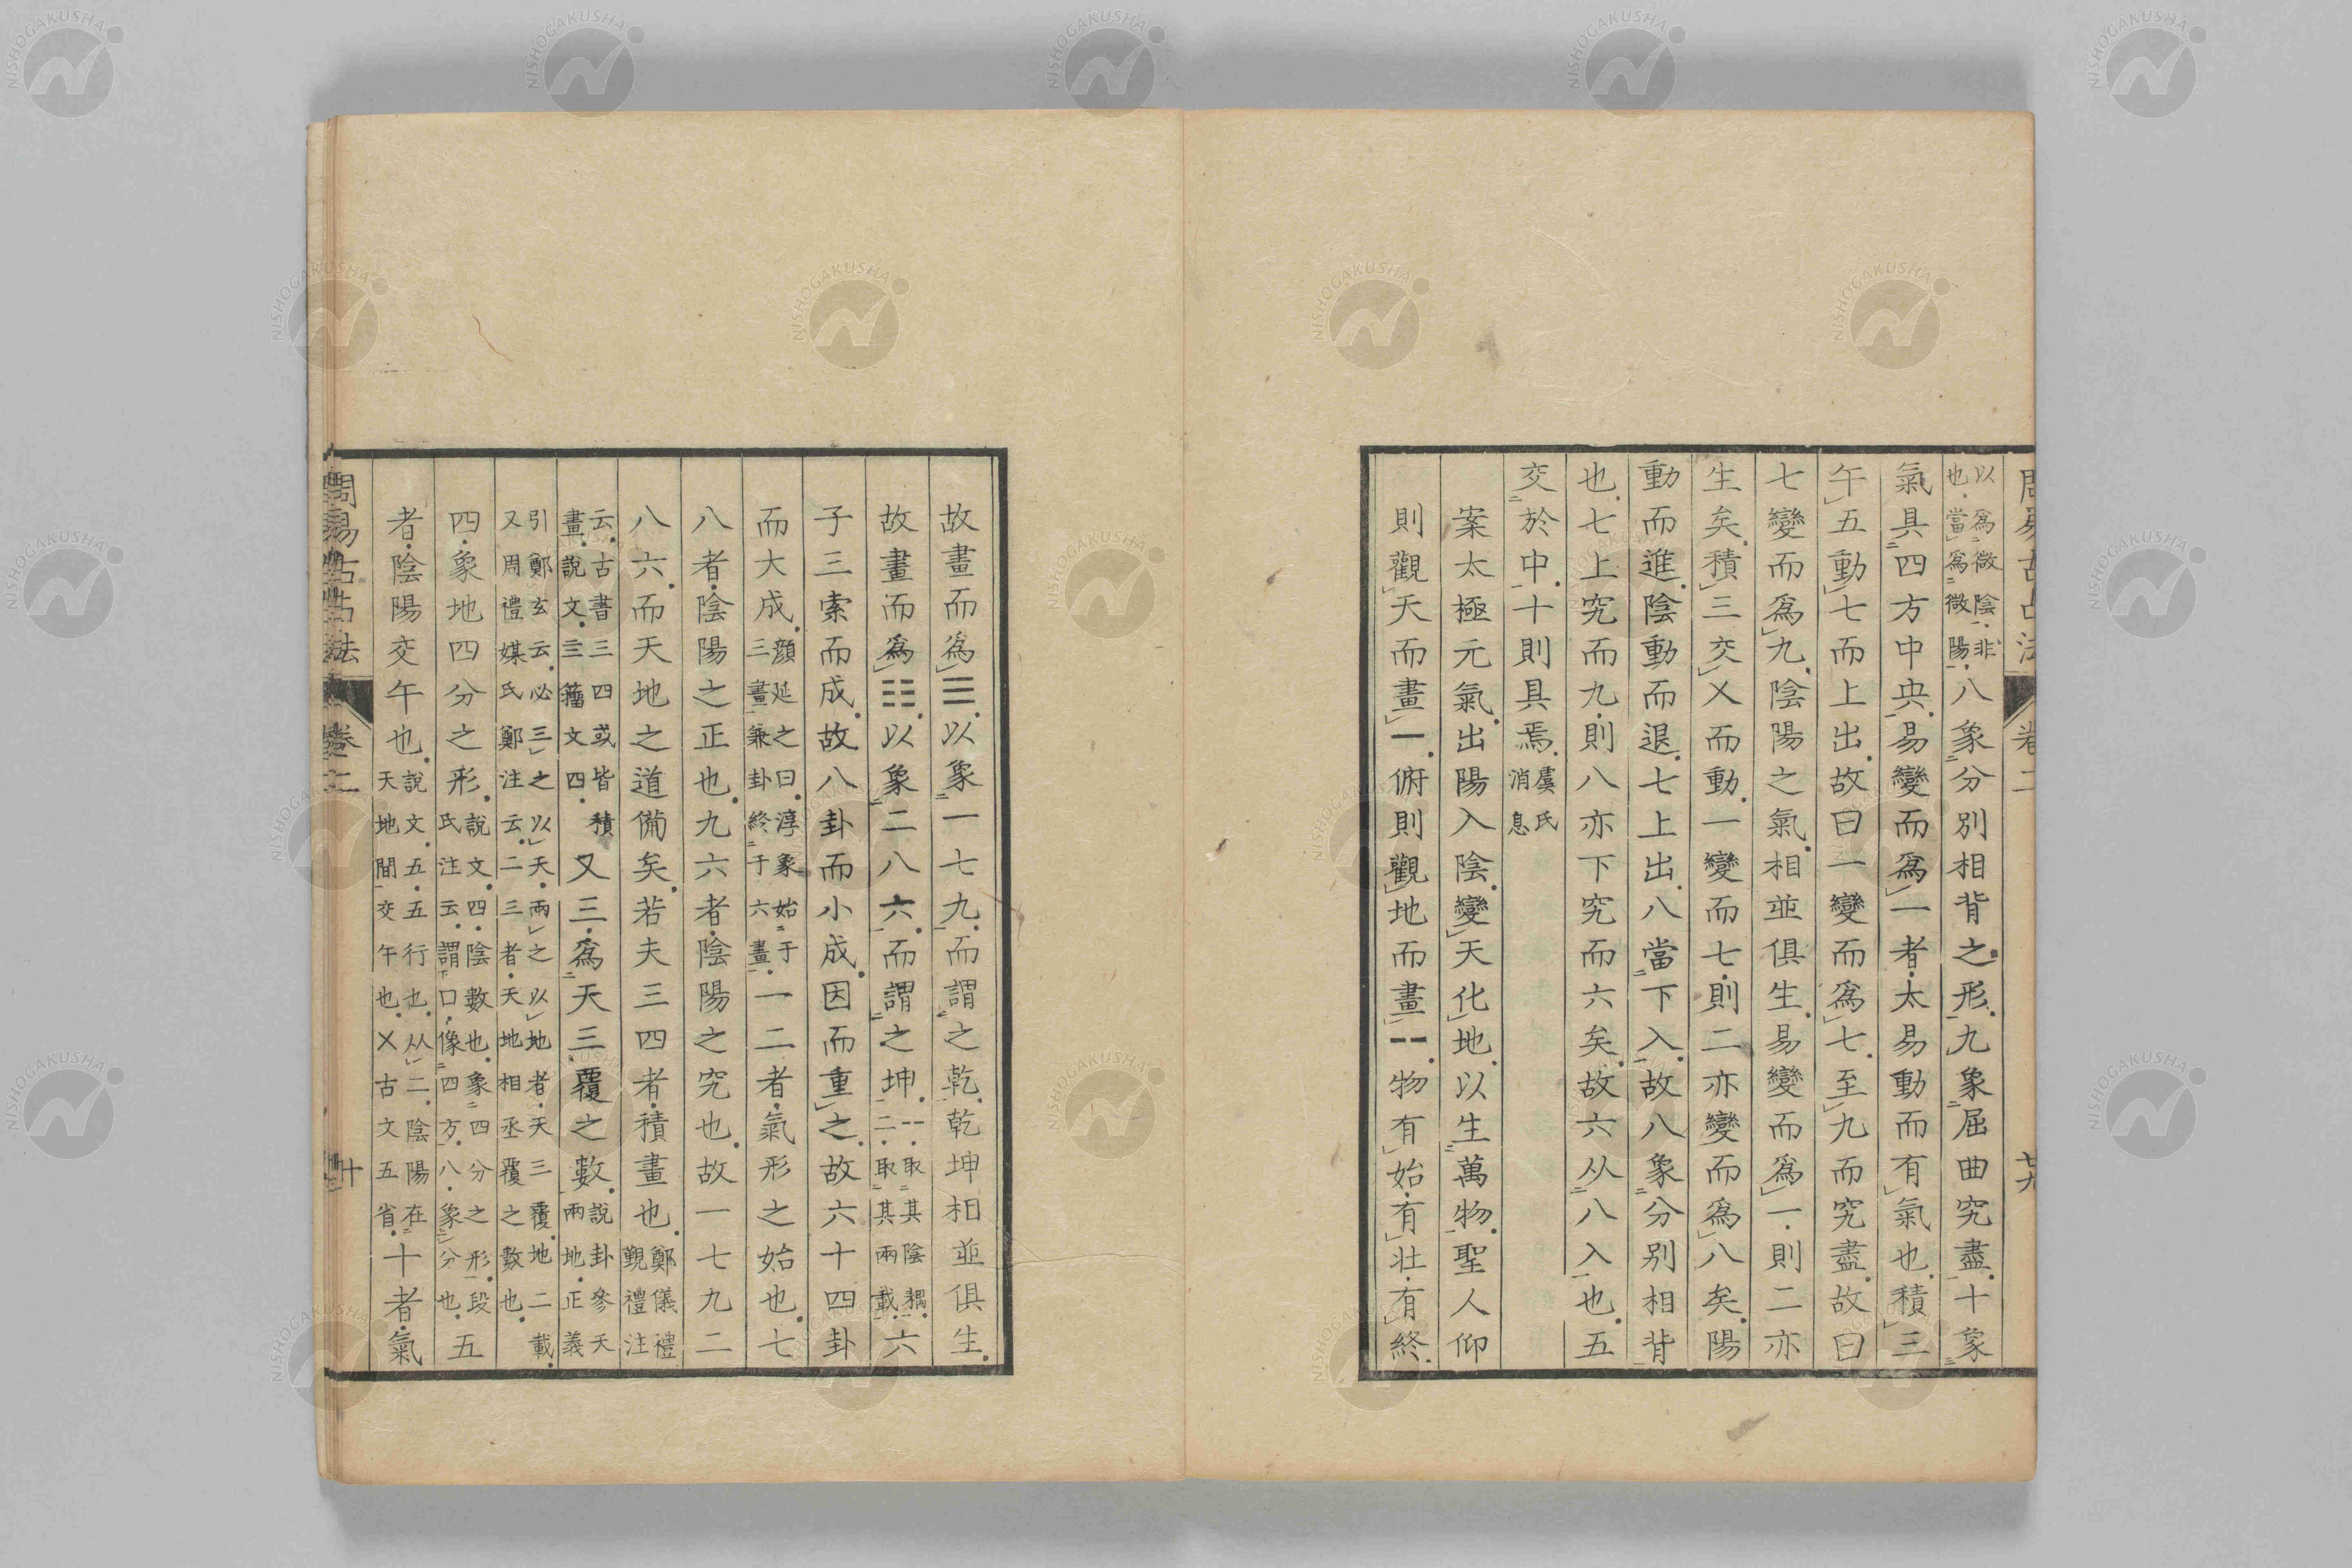 周易古占法 卷二 十九
以爲微陰非
也當爲微陽八象分別相背之形九象屈曲究盡十象
氣具四方中央易變而爲一者太易動而有氣也積三
午五動七而上出故曰一變而爲七至九而究盡故曰
七變而爲九陰陽之氣相並俱生易變而爲一則二亦
生矣積三交乂而動一變而七則二亦變而爲八矣陽
動而進陰動而退七上出八當下入故八象分別相背
也七上究而九則八亦下究而六矣故六从八入也五
交於中十則具焉虞氏
消息
案太極元氣出陽入陰變天化地以生萬物聖人仰
則觀天而畫一俯則觀地而畫⚋物有始有壯有終
故畫而爲☰以象一七九而謂之乾乾坤相並俱生
故畫而爲☷以象二八六而謂之坤⚋取其陰耦
二取其兩載六
子三索而成故八卦而小成因而重之故六十四卦
而大成顔延之曰淳象始于
三畫兼卦終于六畫一二者氣形之始也七
八者陰陽之正也九六者陰陽之究也故一七九二
八六而天地之道備矣若夫三四者積畫也鄭儀禮
覲禮注
云古書三四或皆積
畫說文亖籀文四又三爲天三覆之數說卦參天
兩地正義
引鄭玄云必三之以天兩之以地者天三覆地二載
又周禮媒氏鄭注云二三者天地相丞覆之數也
四象地四分之形說文四陰數也象四分之形段
氏注云謂口像四方八象分也五
者陰陽交午也說文五五行也从二陰陽在
天地間交午也㐅古文五省十者氣
周易古占法 卷二 十